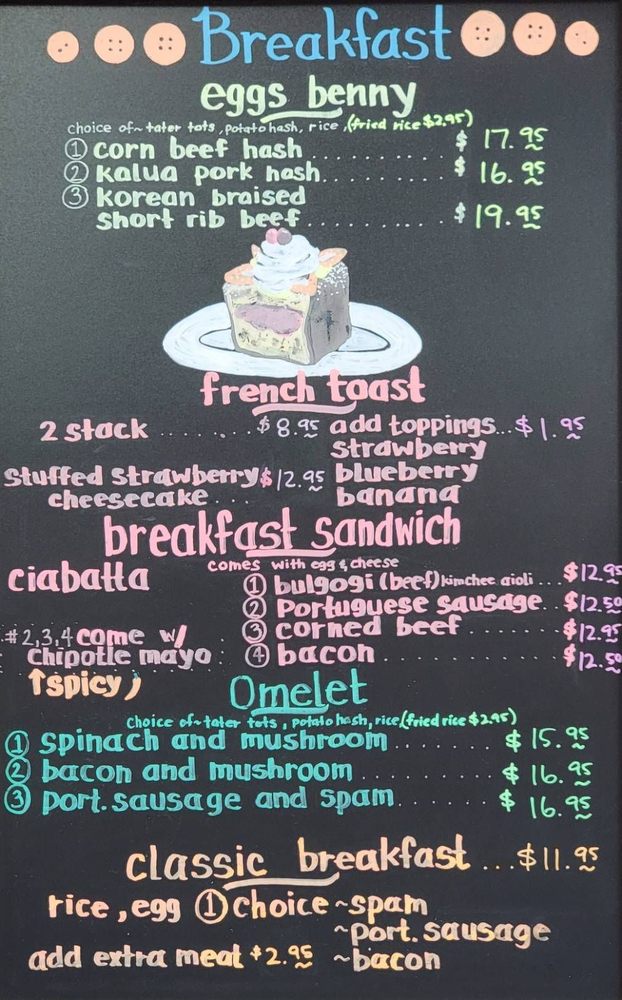 Breakfast
eggs benny
choice of~ tater tots, potato hash, rice, (fried rice $2.95)
① corn beef hash .......... $17.95
② kalua pork hash .......... $16.95
③ korean braised
short rib beef .......... $19.95
french toast
2 stack ........ $8.95
stuffed strawberry $12.95
cheesecake ...
add toppings... $1.95
strawberry
blueberry
banana
breakfast sandwich
comes with egg & cheese
ciabatta
① bulgogi (beef) kimchee aioli ... $12.95
② Portuguese sausage .. $12.50
③ corned beef ........ $12.95
④ bacon .......... $12.50
#2,3,4 come w/
chipotle mayo
↑spicy)
Omelet
choice of~ tater tots, potato hash, rice, (fried rice $2.95)
① spinach and mushroom ........ $15.95
② bacon and mushroom .......... $16.95
③ port. sausage and spam ........ $16.95
classic breakfast ... $11.95
rice, egg ① choice ~spam
~port. sausage
~bacon
add extra meat $2.95